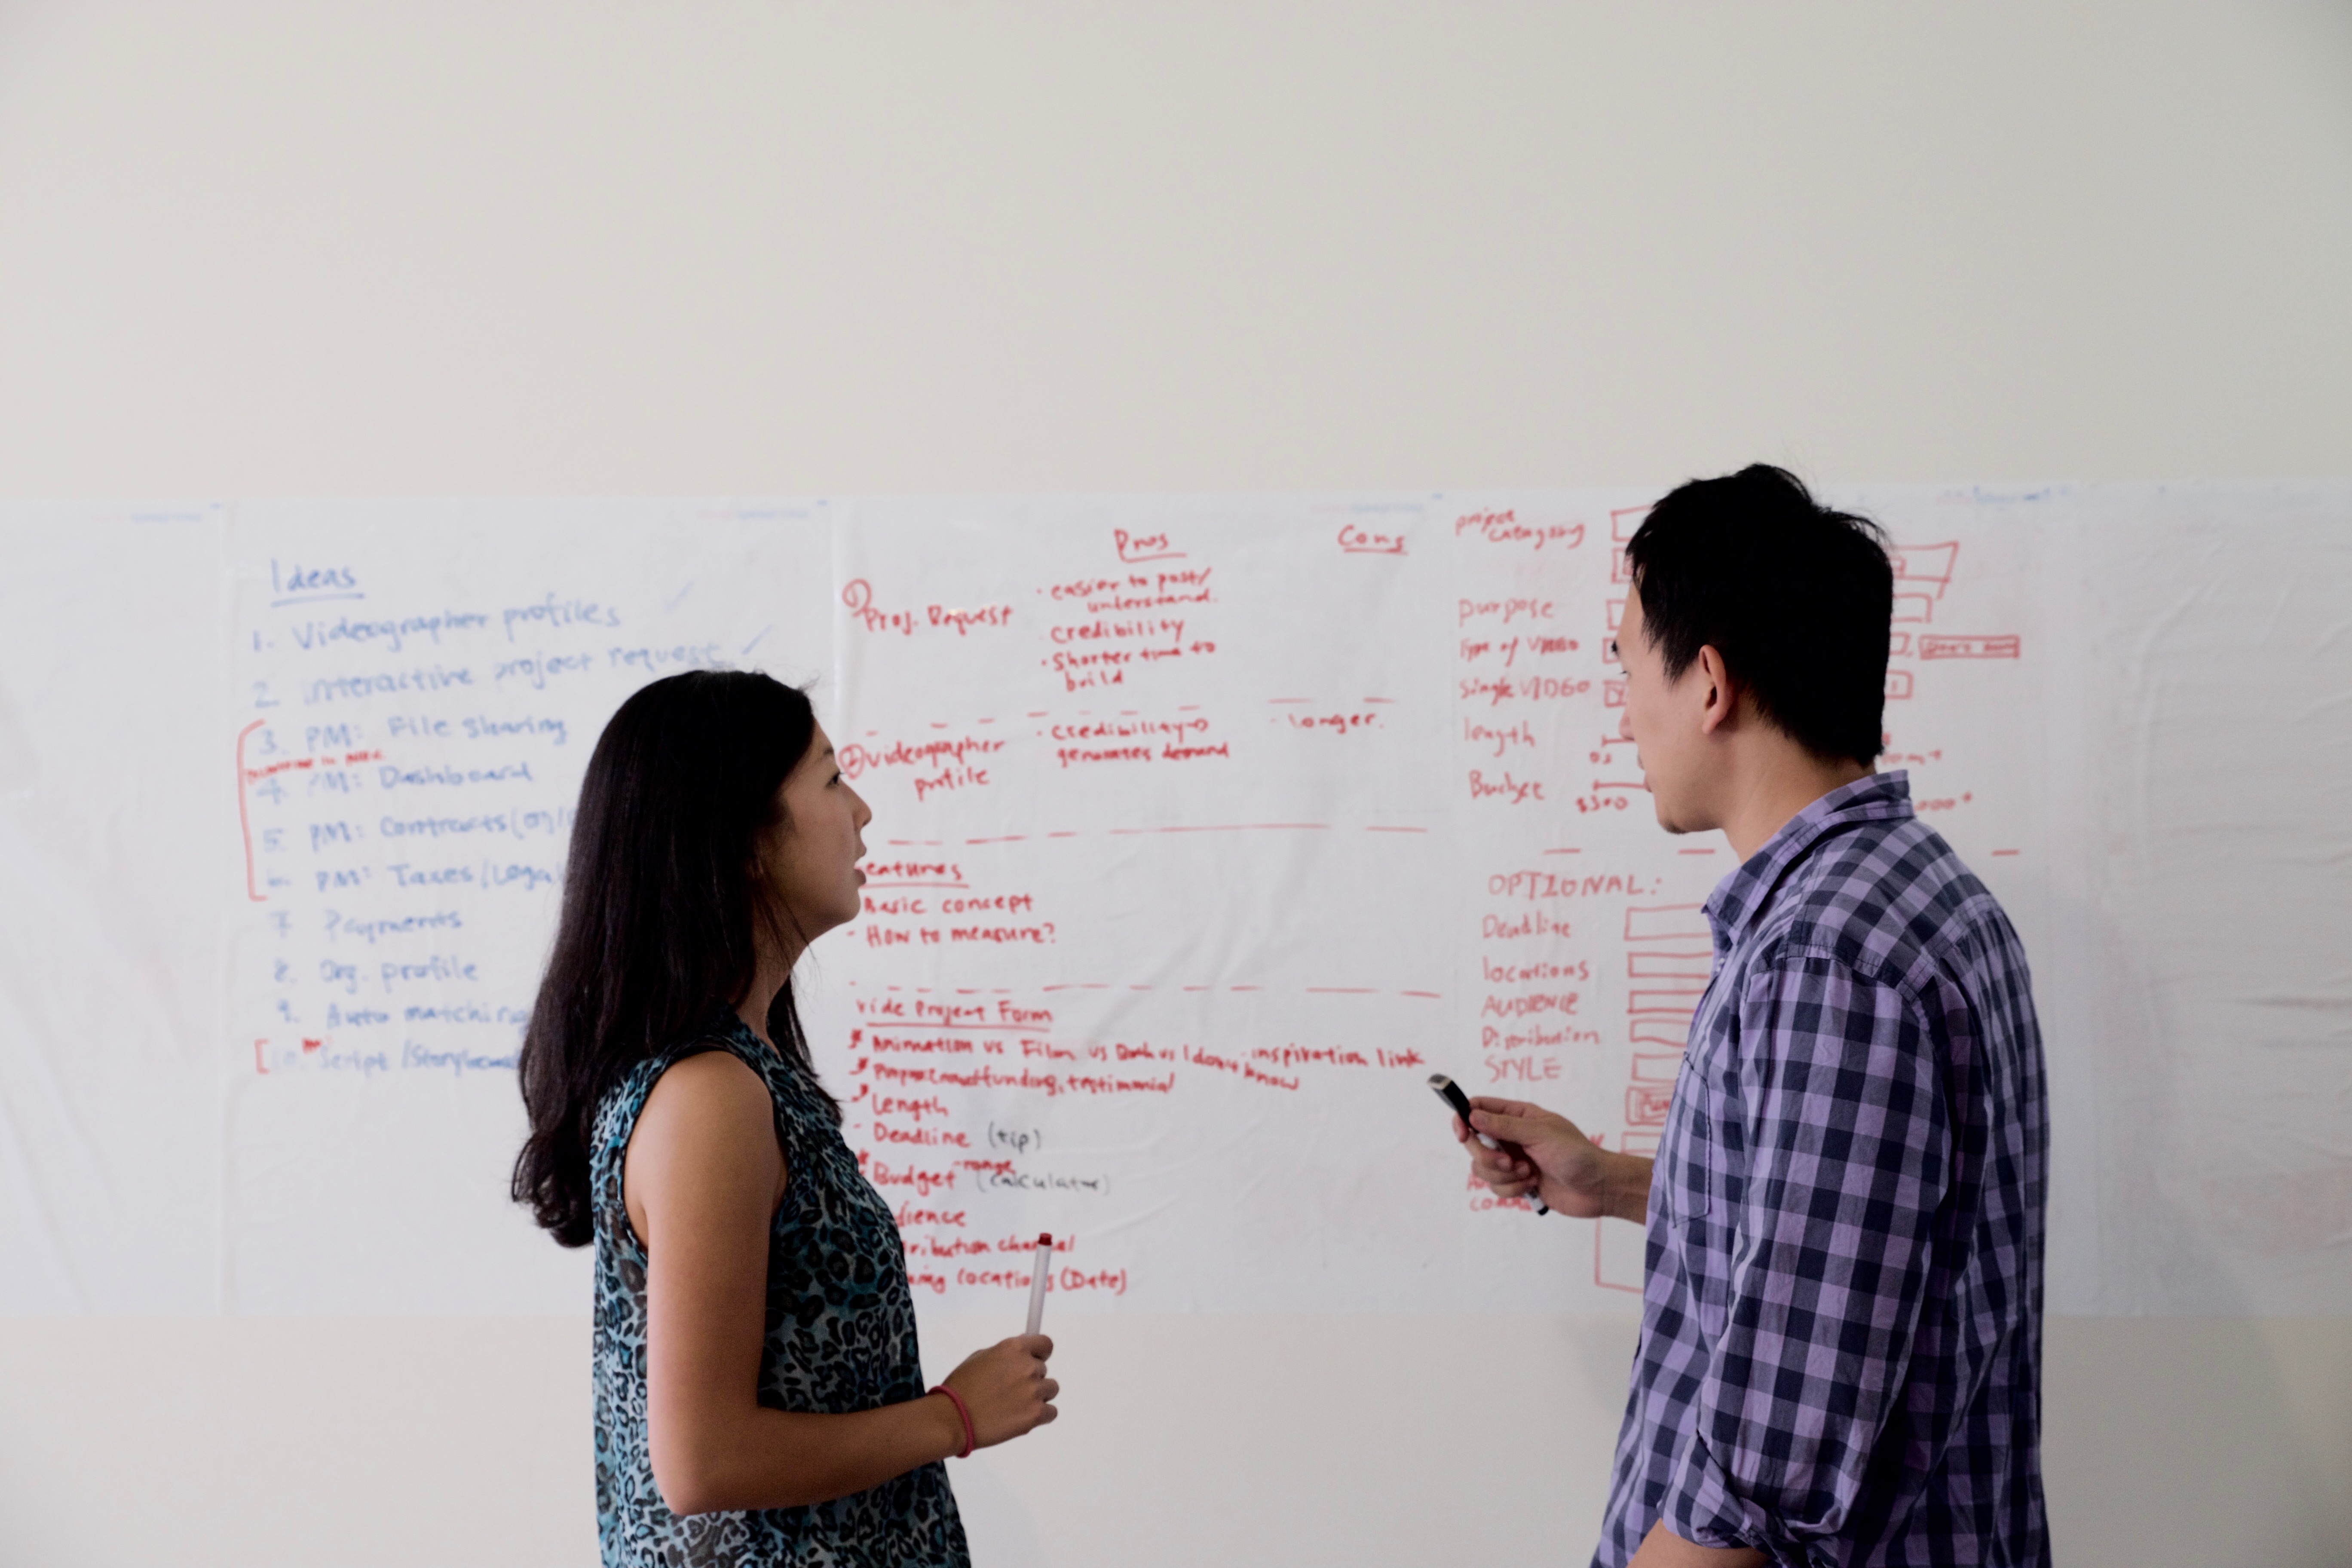 Ideas
1. Videographer profiles
2. interactive project request
3. PM: File Sharing
4. PM: Dashboard
5. PM: Contracts
6. PM: Taxes/Legal
7 Payments
8. Org. profile
9. Auto matching
Script/Story
Pros
Cons
① Proj. Request
· easier to post/
understand.
· credibility
· Shorter time to
build
② Videographer
profile
· credibility →
generates demand
- longer.
eatures
Basic concept
- How to measure?
vide Project Form
Animation vs Film vs vs I don't know
inspiration link
crowdfunding, testimonial
Length
- Deadline (tip)
Budget - range (calculator)
dience
ribution channel
ing locations (Date)
project
category
purpose
Type of VIDEO
Single VIDEO
length
Budget
$500
OPTIONAL:
Deadline
locations
AUDIENCE
Distribution
STYLE